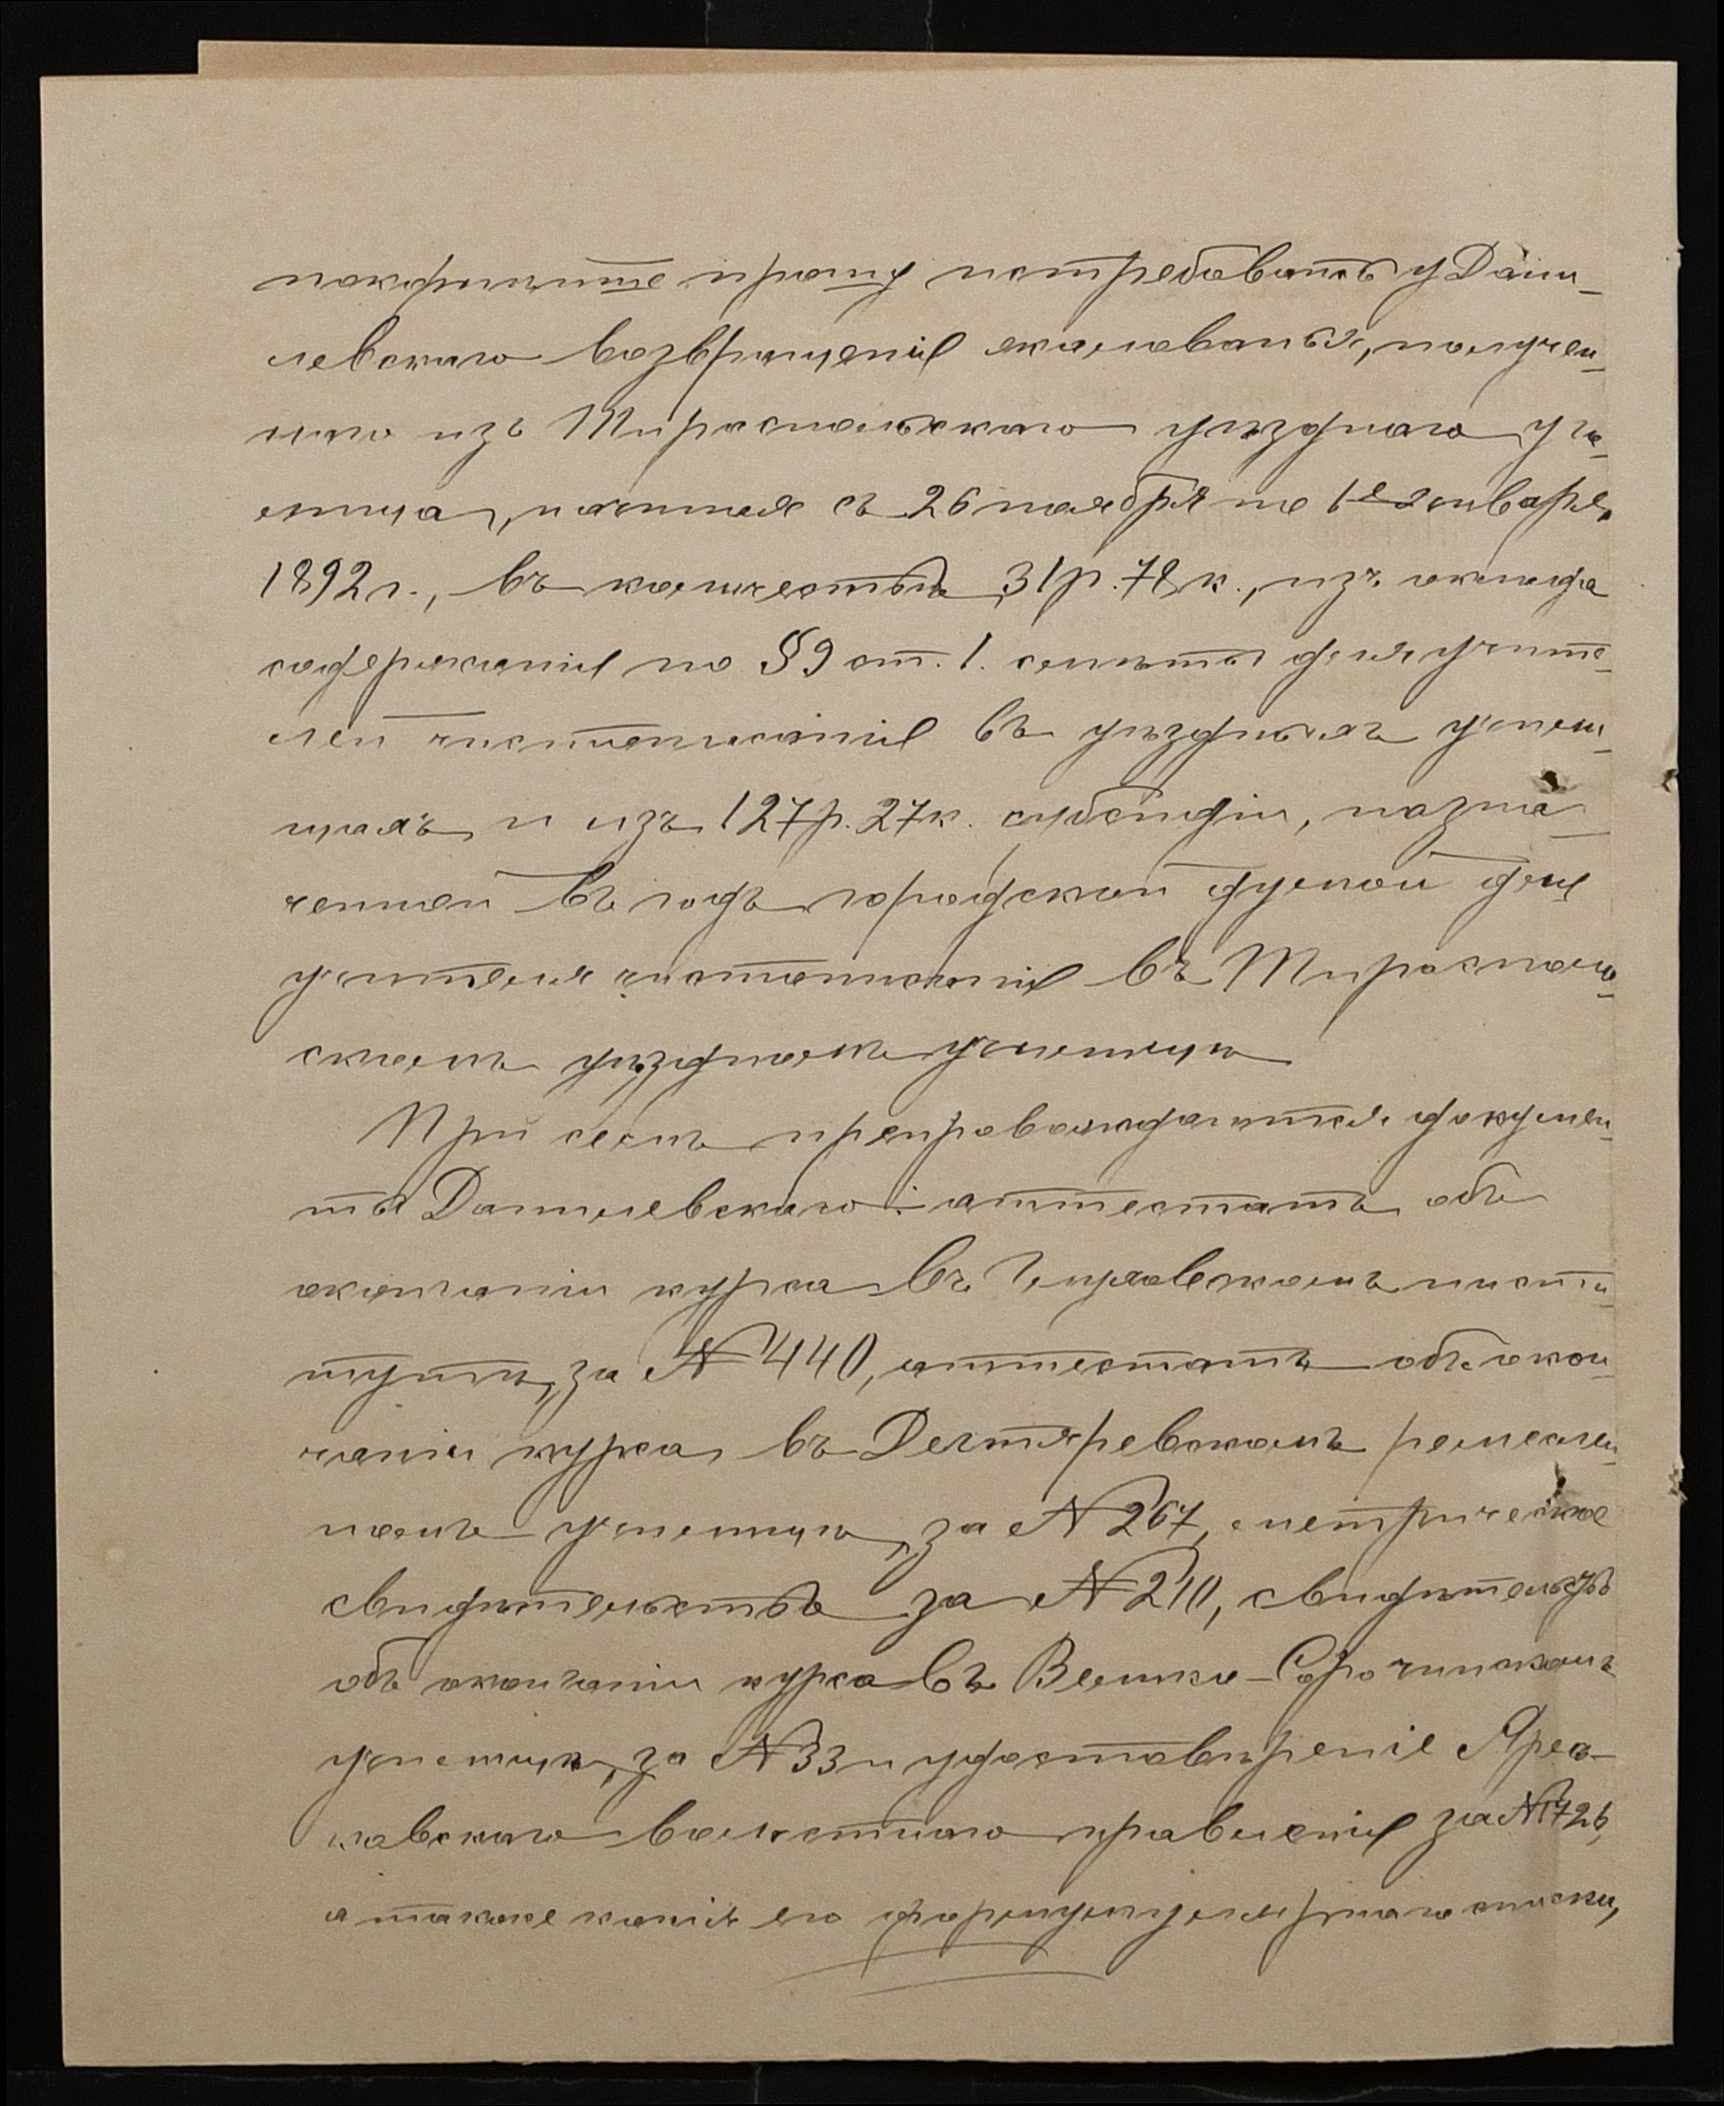 покорнѣйше прошу истребовать у Дани-
левскаго возвращенія жалованья, получен-
наго изъ Тираспольскаго уѣзднаго учи-
лища, начиная съ 26 ноября по 1е января
1892 г., въ количествѣ 31 р. 78 к., изъ оклада
содержанія по § 9 ст. 1. смѣты для учите-
лей чистописанія въ уѣздныхъ учили-
щахъ и изъ 127 р. 27 к. субсидіи, назна-
ченной въ годъ городской думой для
учителя чистописанія въ Тирасполь-
скомъ уѣздномъ училищѣ
При семъ препровождаются докумен-
ты Данилевскаго: аттестатъ объ
окончаніи курса въ Глуховскомъ инсти-
тутѣ, за № 440, аттестатъ объ окон-
чаніи курса въ Дегтяревскомъ ремеслен-
номъ училищѣ, за № 267, метрическое
свидѣтельство за № 210, свидѣтельство
объ окончаніи курса въ Велико-Сорочинскомъ
училищѣ, за № 33 и удостовѣреніе Ярес-
ковскаго волостнаго правленія за № 1726,
а также копія его формулярнаго списка,